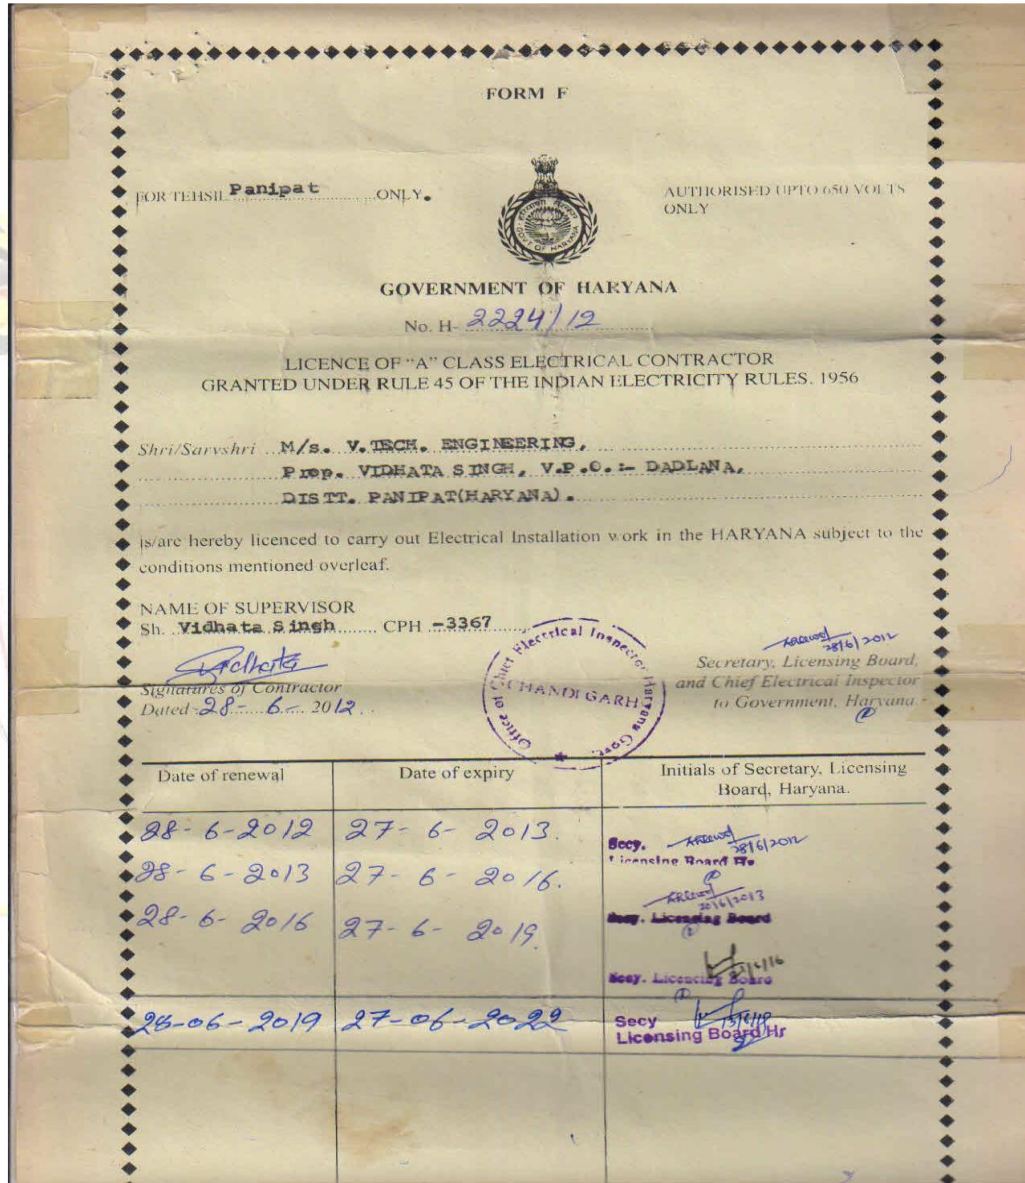 FORM F
FOR TEHSIL Panipat ONLY.
AUTHORISED UPTO 650 VOLTS
ONLY
GOVT OF HARYANA
GOVERNMENT OF HARYANA
No. H- 2224/12
LICENCE OF "A" CLASS ELECTRICAL CONTRACTOR
GRANTED UNDER RULE 45 OF THE INDIAN ELECTRICITY RULES. 1956
Shri/Sarvshri M/s. V.TECH. ENGINEERING,
Prop. VIDHATA SINGH, V.P.O.:- DADLANA,
DISTT. PANIPAT(HARYANA).
is/are hereby licenced to carry out Electrical Installation work in the HARYANA subject to the
conditions mentioned overleaf.
NAME OF SUPERVISOR
Sh. Vidhata Singh CPH -3367
Vidhata
Signatures of Contractor
Dated -28- 6- 2012.
Office of Chief Electrical Inspector Haryana Govt.
CHANDIGARH
28/6/2012
Secretary, Licensing Board,
and Chief Electrical Inspector
to Government, Haryana.
Date of renewal Date of expiry Initials of Secretary, Licensing
Board, Haryana.
28-6-2012 27-6-2013. Secy. 28/6/2012
Licensing Board
28-6-2013 27-6-2016.
Secy. Licensing Board
28-6-2016 27-6-2019.
Secy. Licencing Board
28-06-2019 27-06-2022 Secy
Licensing Board Hr